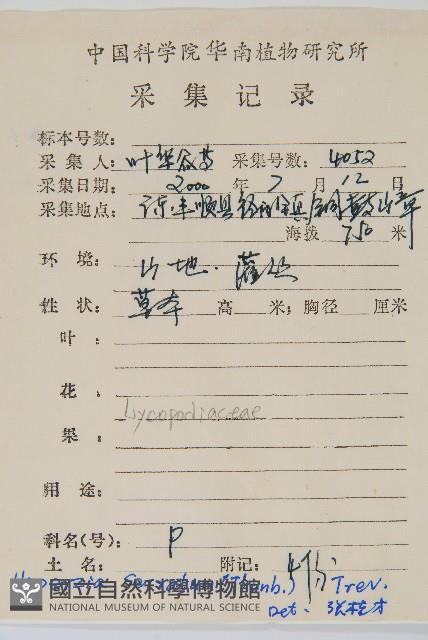 中国科学院华南植物研究所
采集记录
标本号数：
采集人：叶华谷等 采集号数：4052
采集日期：2000 年 7 月 12 日
采集地点：丰顺县
海拨 750 米
环境：山地．灌丛
性状：草本 高 米；胸径 厘米
叶：
花：
Lycopodiaceae
果：
用途：
科名(号)：P
土名： 附记：4份
Serrata (Thunb.) Trev.
國立自然科學博物館
NATIONAL MUSEUM OF NATURAL SCIENCE
Det. 张桂才